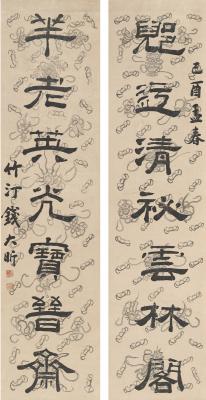 己酉孟春
郳迂清祕雲林閣
米老英光寶晉齋
竹汀錢大昕